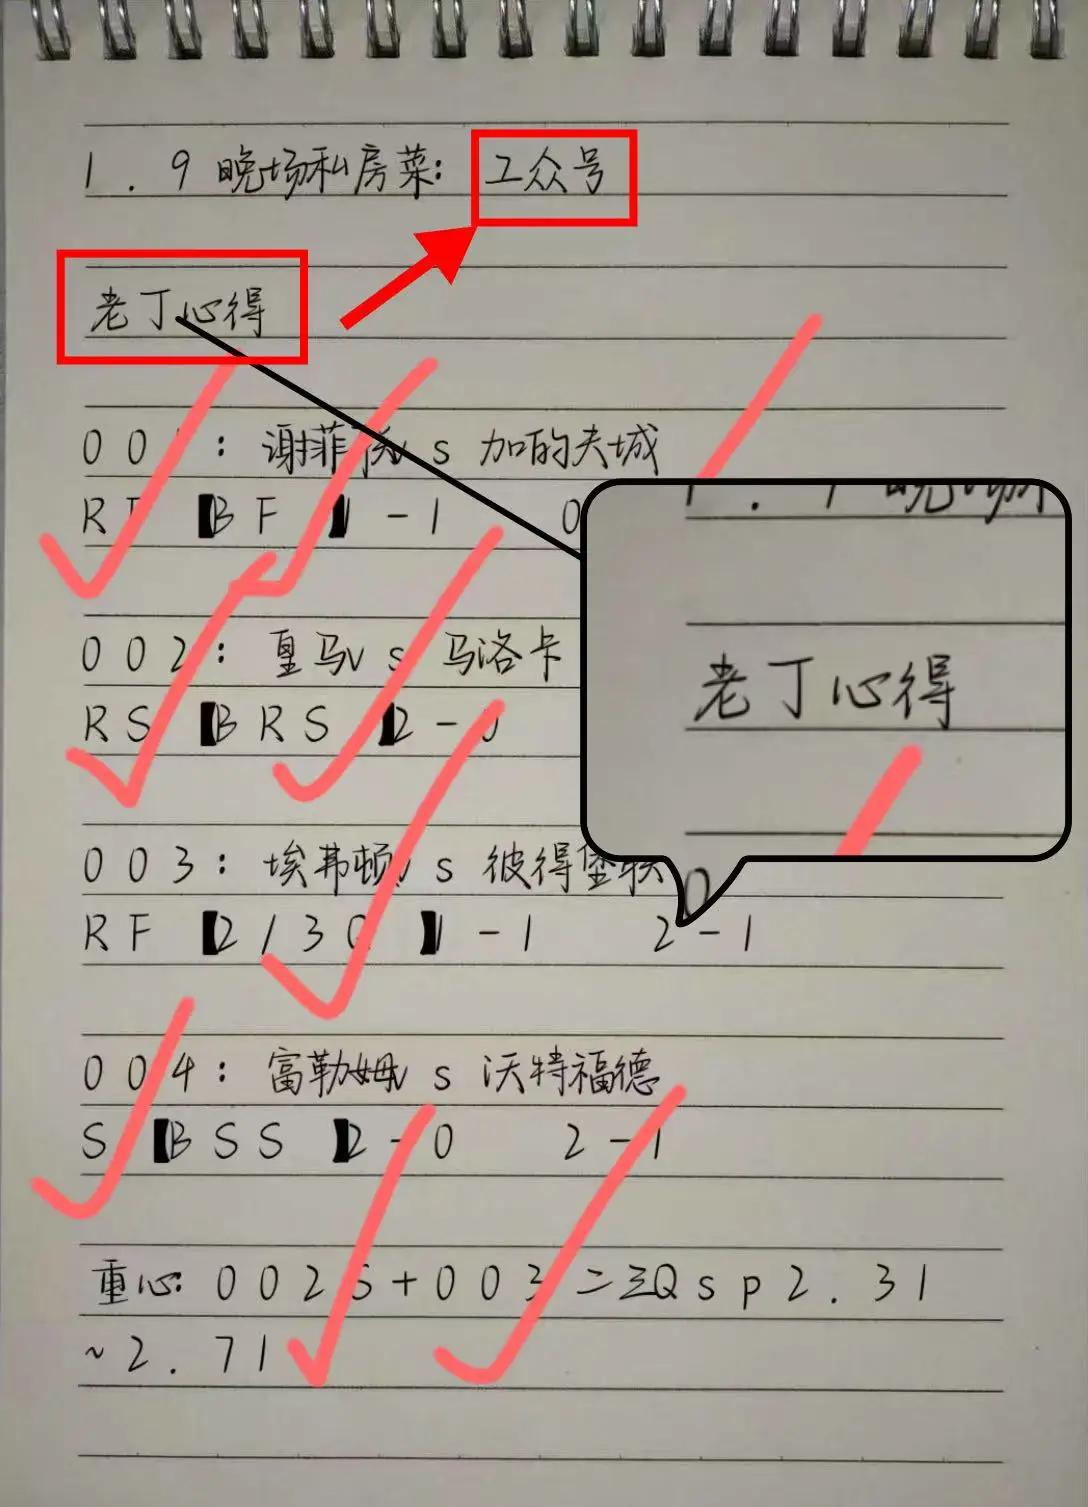 1.9晚场私房菜:工众号
老丁心得
00 : 谢菲 vs 加的夫城
R 【BF】1-1 0
002: 皇马vs 马洛卡
RS【BRS】2-0
003: 埃弗顿vs 彼得堡联
RF【2/3Q】1-1 2-1
004: 富勒姆vs 沃特福德
S【BSS】2-0 2-1
重心:002S+003二三Qsp2.31
~2.71
1.9晚场
老丁心得
0